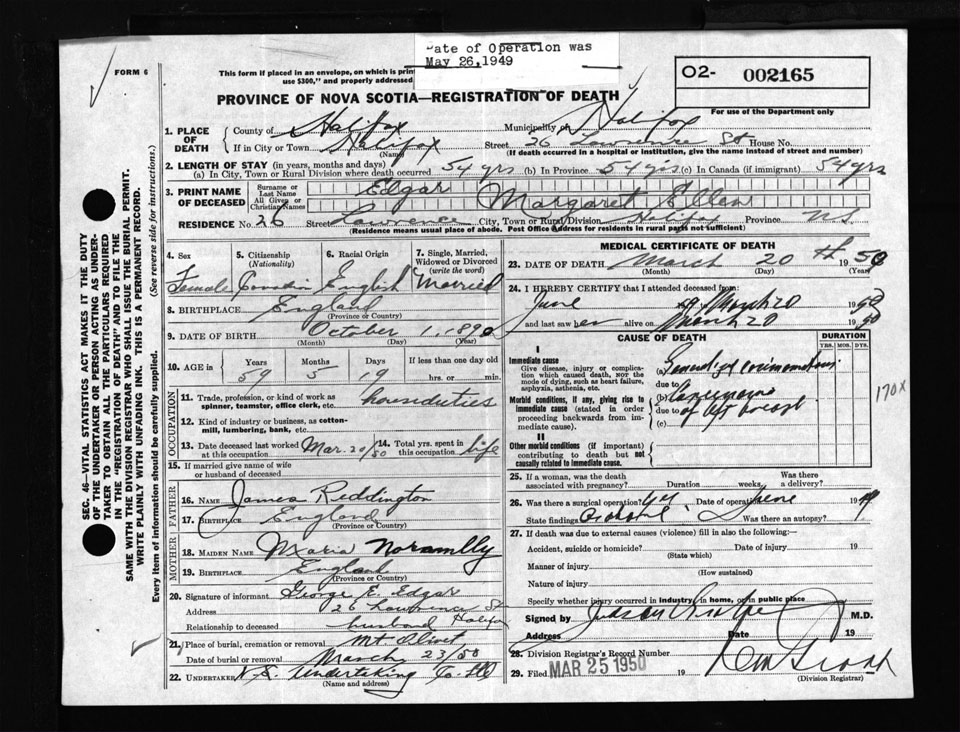 Date of Operation was
May 26, 1949
FORM 6
This form if placed in an envelope, on which is prin
use $300," and properly addressed
O2- 002165
For use of the Department only
PROVINCE OF NOVA SCOTIA—REGISTRATION OF DEATH
1. PLACE OF DEATH
County of Halifax Municipality of Halifax
If in City or Town Halifax (Name) Street 26 Lawrence St House No.
(If death occurred in a hospital or institution, give the name instead of street and number)
2. LENGTH OF STAY (in years, months and days)
(a) In City, Town or Rural Division where death occurred 54 yrs (b) In Province 54 yrs (c) In Canada (if immigrant) 54 yrs
3. PRINT NAME OF DECEASED
Surname or Last Name Edgar
All Given or Christian Names Margaret Ellen
RESIDENCE No. 26 Street Lawrence City, Town or Rural Division Halifax Province N.S.
(Residence means usual place of abode. Post Office Address for residents in rural parts not sufficient)
4. Sex
Female
5. Citizenship (Nationality)
Canadian
6. Racial Origin
English
7. Single, Married, Widowed or Divorced (write the word)
Married
8. BIRTHPLACE England
(Province or Country)
9. DATE OF BIRTH October 1, 1890
(Month) (Day) (Year)
10. AGE in Years Months Days If less than one day old
59 5 19 hrs. or min.
OCCUPATION
11. Trade, profession, or kind of work as spinner, teamster, office clerk, etc. houseduties
12. Kind of industry or business, as cotton-mill, lumbering, bank, etc.
13. Date deceased last worked at this occupation Mar. 20/50
14. Total yrs. spent in this occupation life
15. If married give name of wife or husband of deceased
FATHER
16. NAME James Reddington
17. BIRTHPLACE England
(Province or Country)
MOTHER
18. MAIDEN NAME Maria
19. BIRTHPLACE England
(Province or Country)
20. Signature of informant George E. Edgar
Address 26 Lawrence St Halifax
Relationship to deceased husband
21. Place of burial, cremation or removal Mt Olivet
Date of burial or removal March 23/50
22. UNDERTAKER N.S. Undertaking Co. Ltd
(Name and address)
MEDICAL CERTIFICATE OF DEATH
23. DATE OF DEATH March 20th 1950
(Month) (Day) (Year)
24. I HEREBY CERTIFY that I attended deceased from:
June 49 March 20 1950
and last saw her alive on March 20 1950
CAUSE OF DEATH
DURATION
YRS. MOS. DYS.
I
Immediate cause
Give disease, injury or complication which caused death, not the mode of dying, such as heart failure, asphyxia, asthenia, etc.
(a) Generalized carcinomatosis
due to
Morbid conditions, if any, giving rise to immediate cause (stated in order proceeding backwards from immediate cause).
(b) Carcinoma
due to of left breast
(c)
170X
II
Other morbid conditions (if important) contributing to death but not causally related to immediate cause.
25. If a woman, was the death associated with pregnancy? Duration weeks Was there a delivery?
26. Was there a surgical operation? yes Date of operation June 1949
State findings Was there an autopsy?
27. If death was due to external causes (violence) fill in also the following:—
Accident, suicide or homicide? Date of injury 19
(State which)
Manner of injury
(How sustained)
Nature of injury
Specify whether injury occurred in industry, in home, or in public place
Signed by M.D.
Address Date 19
28. Division Registrar's Record Number
29. Filed MAR 25 1950 19
(Division Registrar)
SEC. 46—VITAL STATISTICS ACT MAKES IT THE DUTY
OF THE UNDERTAKER OR PERSON ACTING AS UNDER-
TAKER TO OBTAIN ALL THE PARTICULARS REQUIRED
IN THE "REGISTRATION OF DEATH" AND TO FILE THE
SAME WITH THE DIVISION REGISTRAR WHO SHALL ISSUE THE BURIAL PERMIT.
WRITE PLAINLY WITH UNFADING INK. THIS IS A PERMANENT RECORD.
Every item of information should be carefully supplied. (See reverse side for instructions.)